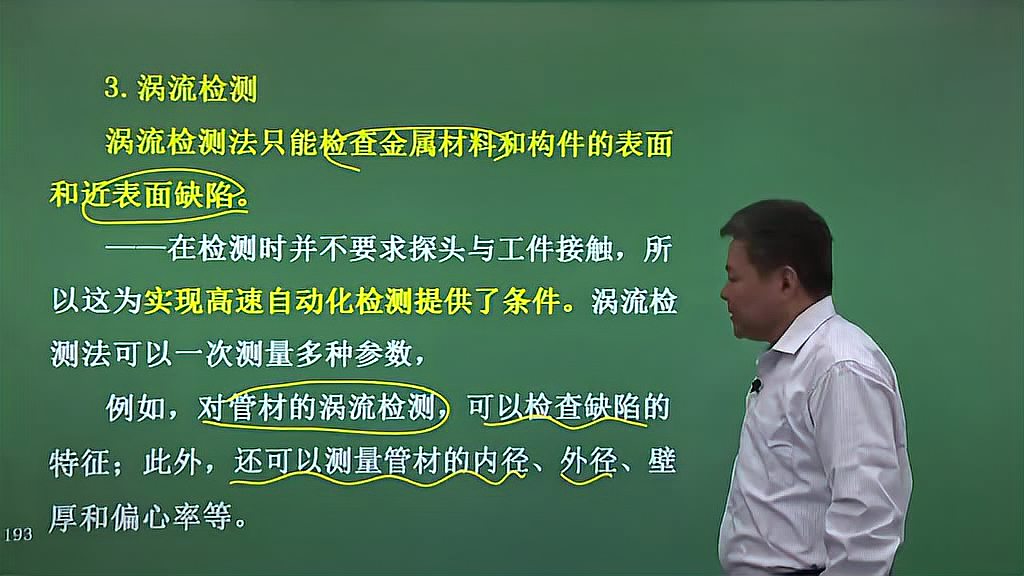 3. 涡流检测
涡流检测法只能检查金属材料和构件的表面
和近表面缺陷。
——在检测时并不要求探头与工件接触，所
以这为实现高速自动化检测提供了条件。涡流检
测法可以一次测量多种参数，
例如，对管材的涡流检测，可以检查缺陷的
特征；此外，还可以测量管材的内径、外径、壁
厚和偏心率等。
193